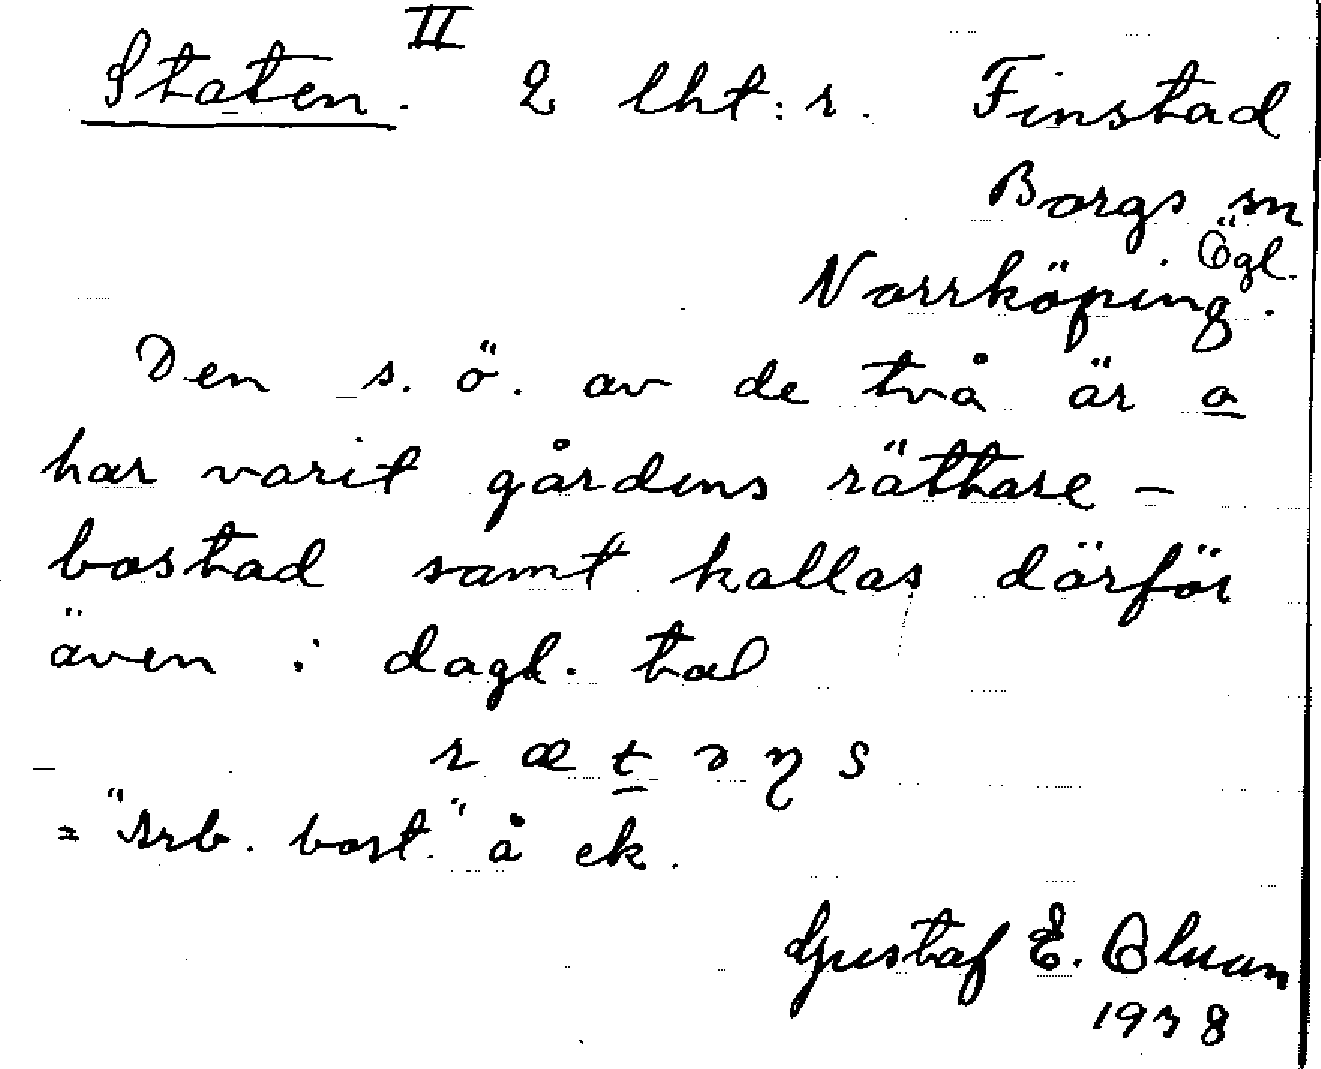 II
Staten. 2 lht:r. Finstad
Borgs sn
Ögl.
Norrköping.
Den s. ö. av de två är o
har varit gårdens rättare-
bostad samt kallas därför
även i dagl. tal
r æ t
= "arb. bost." å ek.
Gustaf E.
1938